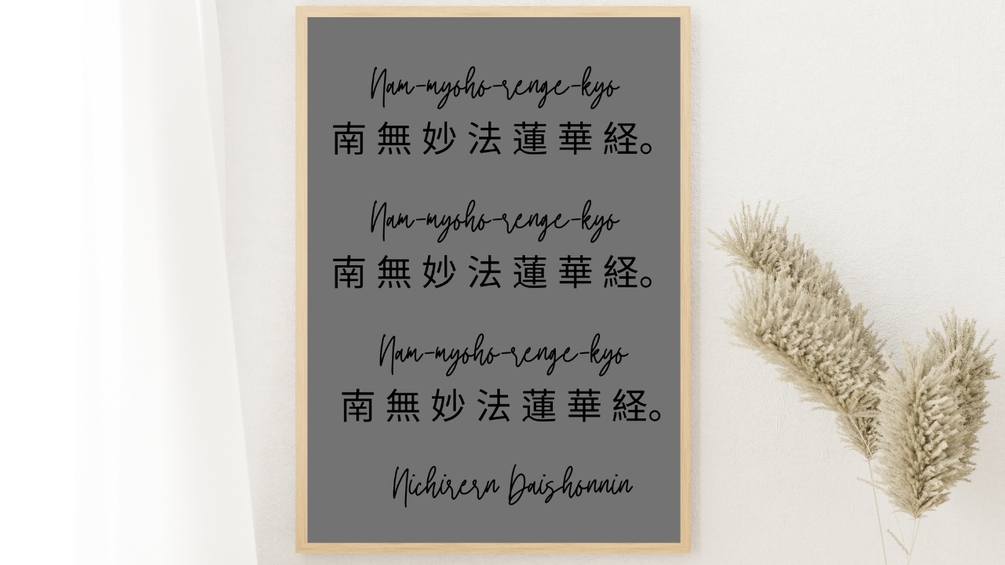 Nam-myoho-renge-kyo
南無妙法蓮華経。
Nam-myoho-renge-kyo
南無妙法蓮華経。
Nam-myoho-renge-kyo
南無妙法蓮華経。
Nichirern Daishonnin